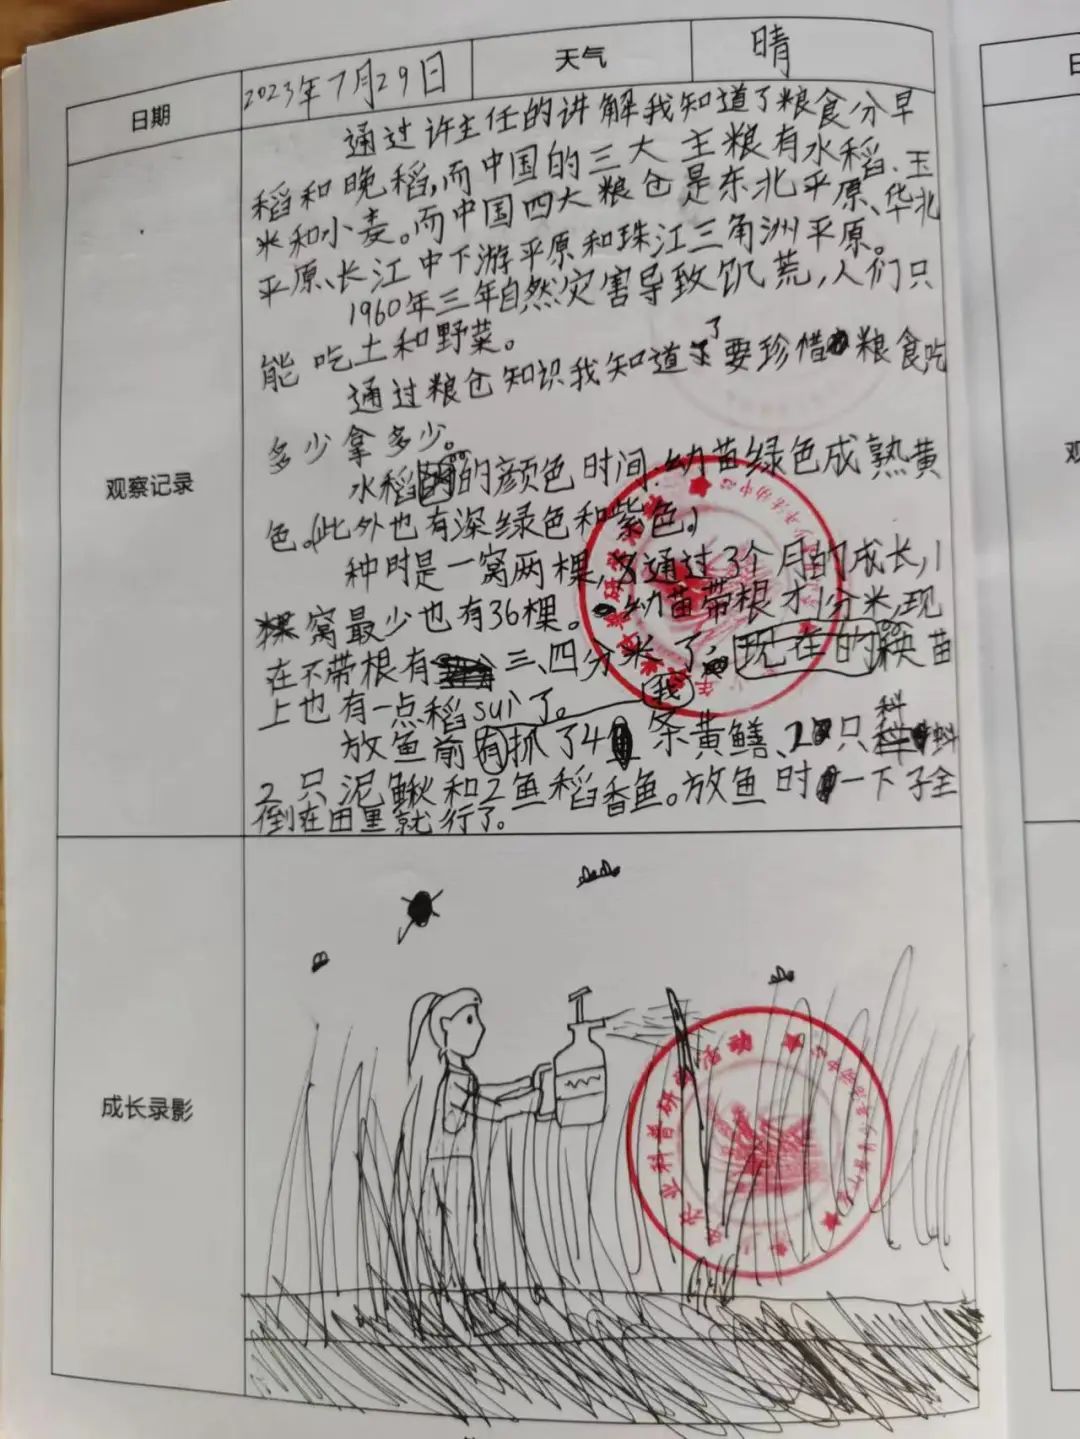 日期 2023年7月29日 天气 晴
观察记录
通过许主任的讲解我知道了粮食分早
稻和晚稻,而中国的三大主粮有水稻、玉
米和小麦。而中国四大粮仓是东北平原、华北
平原、长江中下游平原和珠江三角洲平原。
1960年三年自然灾害导致饥荒,人们只
能吃土和野菜。
通过粮仓知识我知道了要珍惜粮食吃
多少拿多少。
水稻的颜色时间:幼苗绿色成熟黄
色。(此外也有深绿色和紫色。)
种时是一窝两棵,通过3个月的成长,1
窝最少也有36棵。幼苗带根才1分米,现
在不带根有三、四分米了,现在的秧苗
上也有一点稻sui了。
放鱼前我抓了4条黄鳝、2只科蚪
2只泥鳅和2鱼稻香鱼。放鱼时一下子全
倒在田里就行了。
成长录影
业科普研学活动